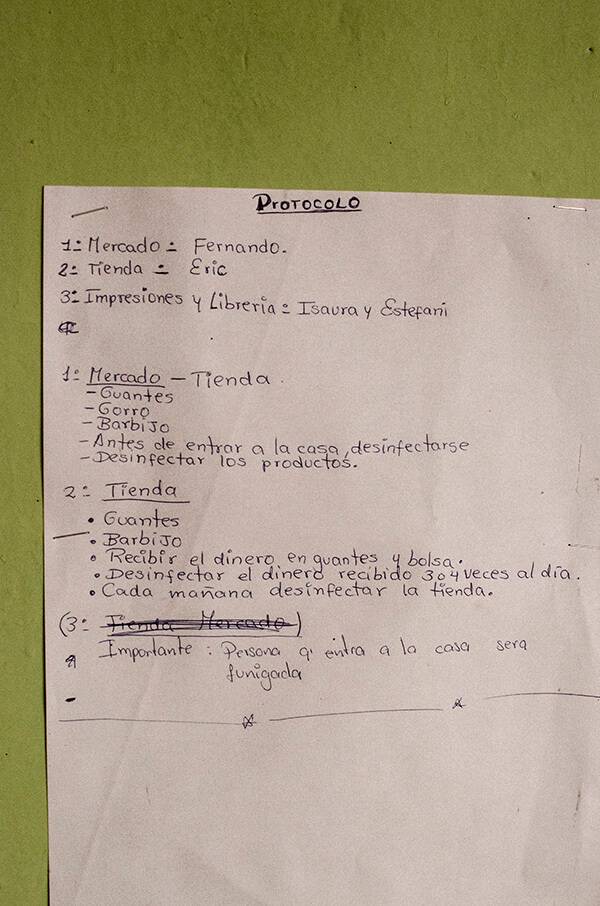 PROTOCOLO
1º Mercado = Fernando.
2º Tienda = Eric
3º Impresiones y Libreria = Isaura y Estefani
1º Mercado - Tienda.
- Guantes
- Gorro
- Barbijo
- Antes de entrar a la casa, desinfectarse
- Desinfectar los productos.
2º Tienda
• Guantes
• Barbijo
• Recibir el dinero en guantes y bolsa.
• Desinfectar el dinero recibido 3 o 4 veces al día.
• Cada mañana desinfectar la tienda.
(3º Tienda Mercado)
Importante : Persona q' entra a la casa sera
funigada